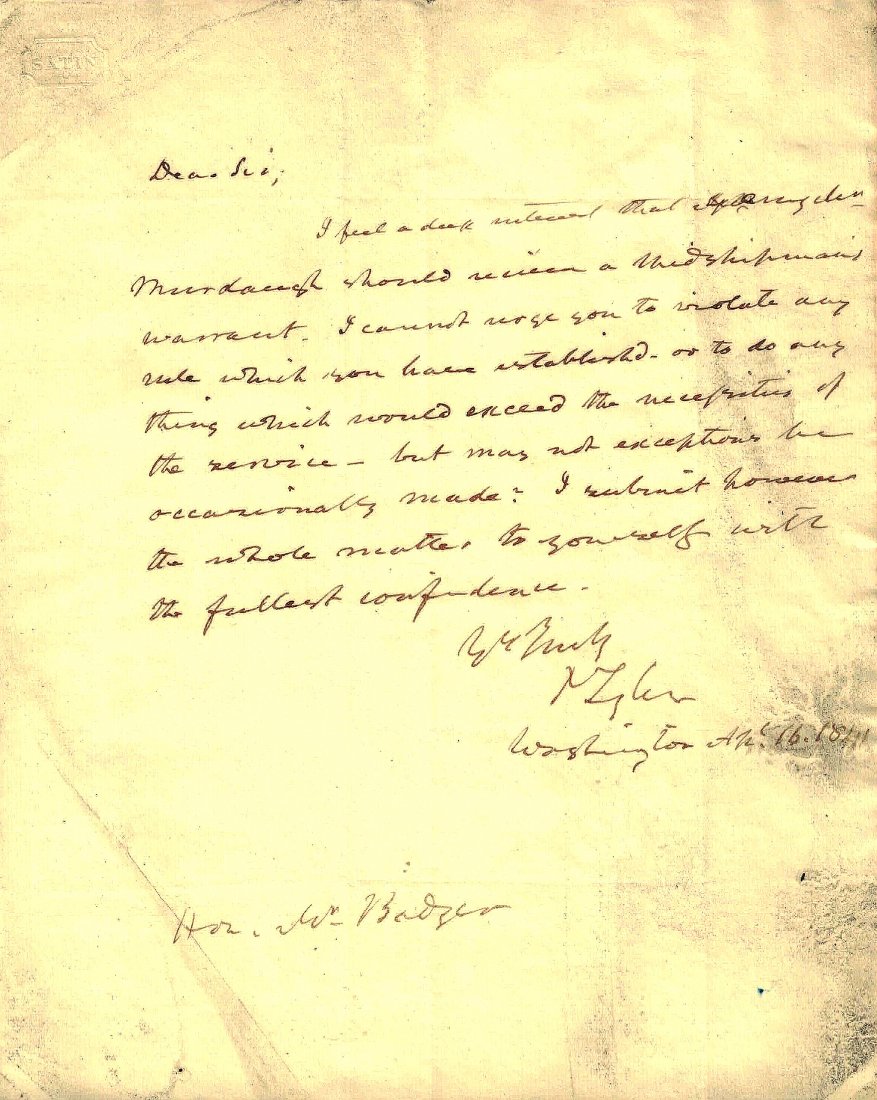 SATIN
Dear Sir,
I feel a deep interest that young Mr
Murdaugh should receive a Midshipman's
warrant. I cannot urge you to violate any
rule which you have established - or to do any
thing which would exceed the necessities of
the service - but may not exceptions be
occasionally made? I submit however
the whole matter to yourself with
the fullest confidence.
Yrs Truly
J Tyler
Washington Apl. 16. 1841
Hon. Mr Badger